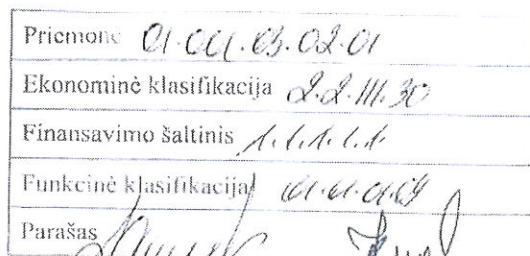 Priemonė 01.04.03.02.01
Ekonominė klasifikacija 2.2.111.30
Finansavimo šaltinis 1.1.1.1.1
Funkcinė klasifikacija
Parašas